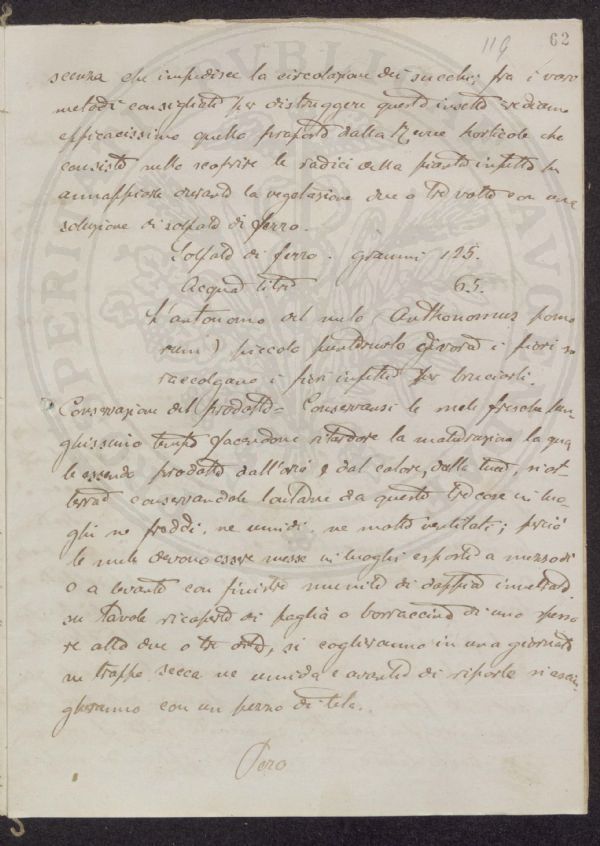 119 62
scenza che impedisce la circolazione dei succhi; fra i varo
metodi consigliati per distruggere questo insetto crediamo
efficacissimo quello proposto dalla Revue horticole che
consiste nello scoprire le radici della pianta infetta ed
annaffiarle durante la vegetazione due o tre volte con una
soluzione di solfato di ferro.
Solfato di ferro . grammi 125.
Acqua litri 65.
L'antonomo del melo (Anthonomus pomo
rum) piccolo punteruolo divora i fiori si
raccolgano i fiori infetti per bruciarli.
Conservazione del prodotto = Conservansi le mele fresche lun
ghissimo tempo facendone ritardare la maturazione la qua
le essendo prodotta dall'aria e dal calore, dalla luce, si ot
terrà conservandole lontane da queste tre cose in luo
ghi ne freddi, ne umidi, ne molto ventilati; perciò
le mele devono essere messe in luoghi esposti a mezzodì
o a levante con finestre munite di doppia invetriata
su tavole ricoperte di paglia o borraccina di uno spesso
re alto due o tre dita, si coglieranno in una giornata
ne troppo secca ne umida e avanti di riporle si asciu
gheranno con un pezzo di tela.
Pero